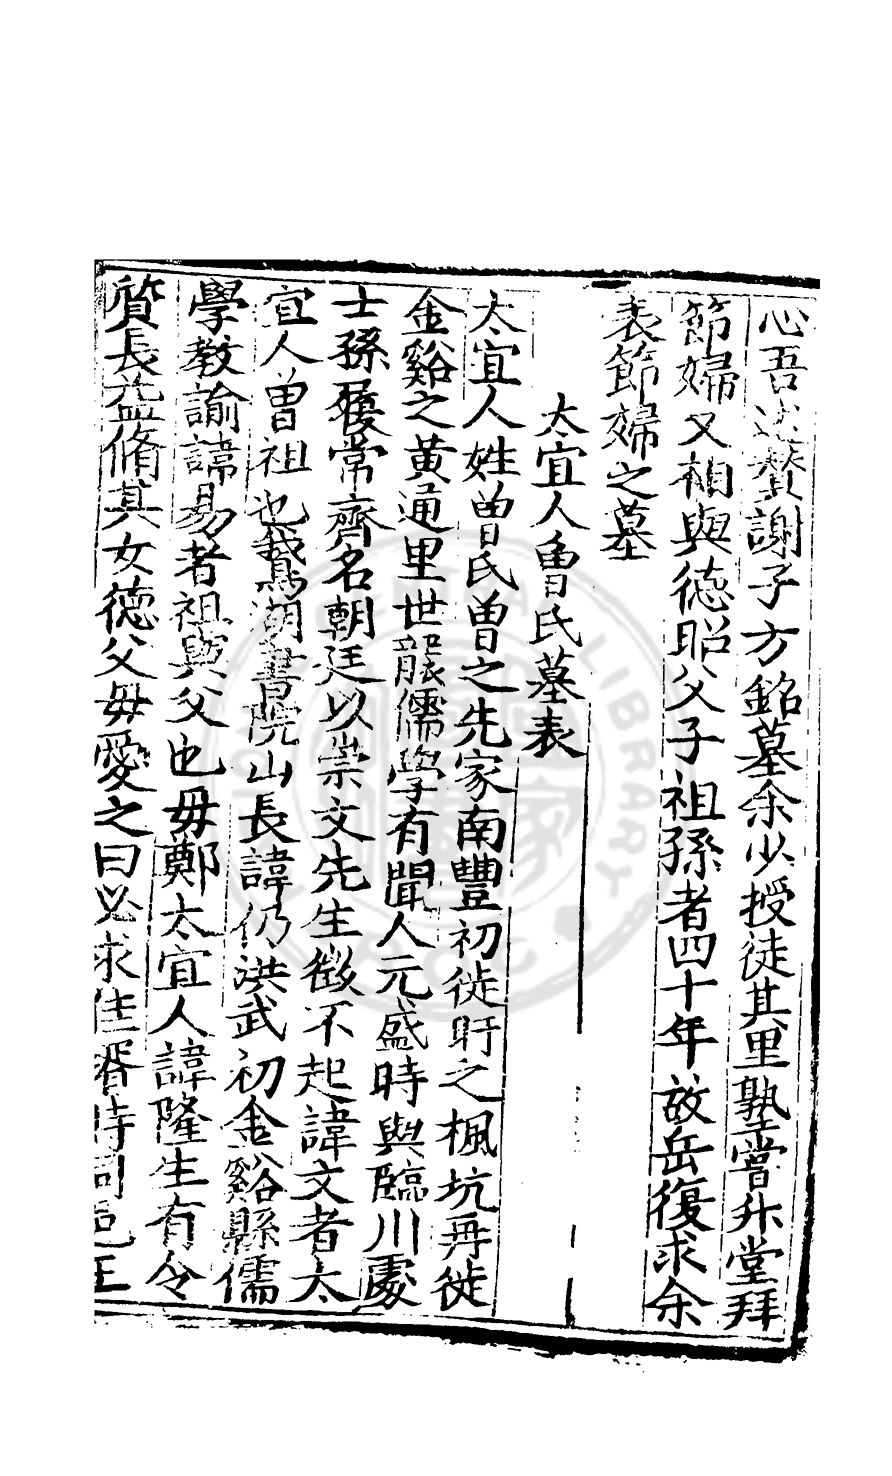 心吾述贊謝子方銘墓余少授徒其里塾嘗升堂拜
節婦又相與德昭父子祖孫者四十年故岳復求余
表節婦之墓
太宜人曾氏墓表
太宜人姓曾氏曾之先家南豐初徙盱之楓坑再徙
金谿之黃通里世襲儒學有聞人元盛時與臨川處
士孫履常齊名朝廷以崇文先生徵不起諱文者太
宜人曾祖也鵞湖書院山長諱仍洪武初金谿縣儒
學教諭諱易者祖與父也毋鄭太宜人諱隆生有令
質長益脩其女德父毋愛之曰必求佳壻時同邑王